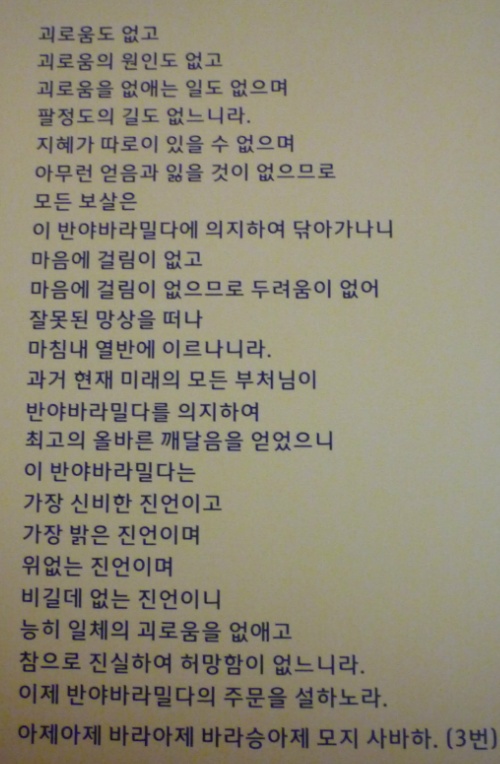 괴로움도 없고
괴로움의 원인도 없고
괴로움을 없애는 일도 없으며
팔정도의 길도 없느니라.
지혜가 따로이 있을 수 없으며
아무런 얻음과 잃을 것이 없으므로
모든 보살은
이 반야바라밀다에 의지하여 닦아가나니
마음에 걸림이 없고
마음에 걸림이 없으므로 두려움이 없어
잘못된 망상을 떠나
마침내 열반에 이르나니라.
과거 현재 미래의 모든 부처님이
반야바라밀다를 의지하여
최고의 올바른 깨달음을 얻었으니
이 반야바라밀다는
가장 신비한 진언이고
가장 밝은 진언이며
위없는 진언이며
비길데 없는 진언이니
능히 일체의 괴로움을 없애고
참으로 진실하여 허망함이 없느니라.
이제 반야바라밀다의 주문을 설하노라.
아제아제 바라아제 바라승아제 모지 사바하. (3번)